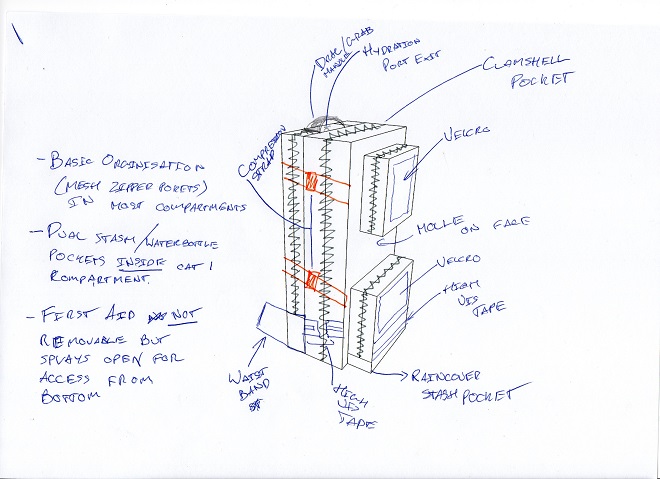 DRAG/GRAB
HANDLE
HYDRATION
PORT EXIT
CLAMSHELL
POCKET
COMPRESSION
STRAP
VELCRO
- BASIC ORGINISATION
(MESH ZIPPER POKETS)
IN MOST COMPARTMENTS
- DUAL STASH/WATERBOTTLE
POCKETS INSIDE CAT 1
KOMPARTMENT.
MOLLE ON FACE
VELCRO
HIGH
VIS
TAPE
- FIRST AID NOT
REMOVABLE BUT
SPLAYS OPEN FOR
ACCESS FROM
BOTTOM
WAIST
BAND
HIGH
VIS
TAPE
RAINCOVER
STASH POCKET